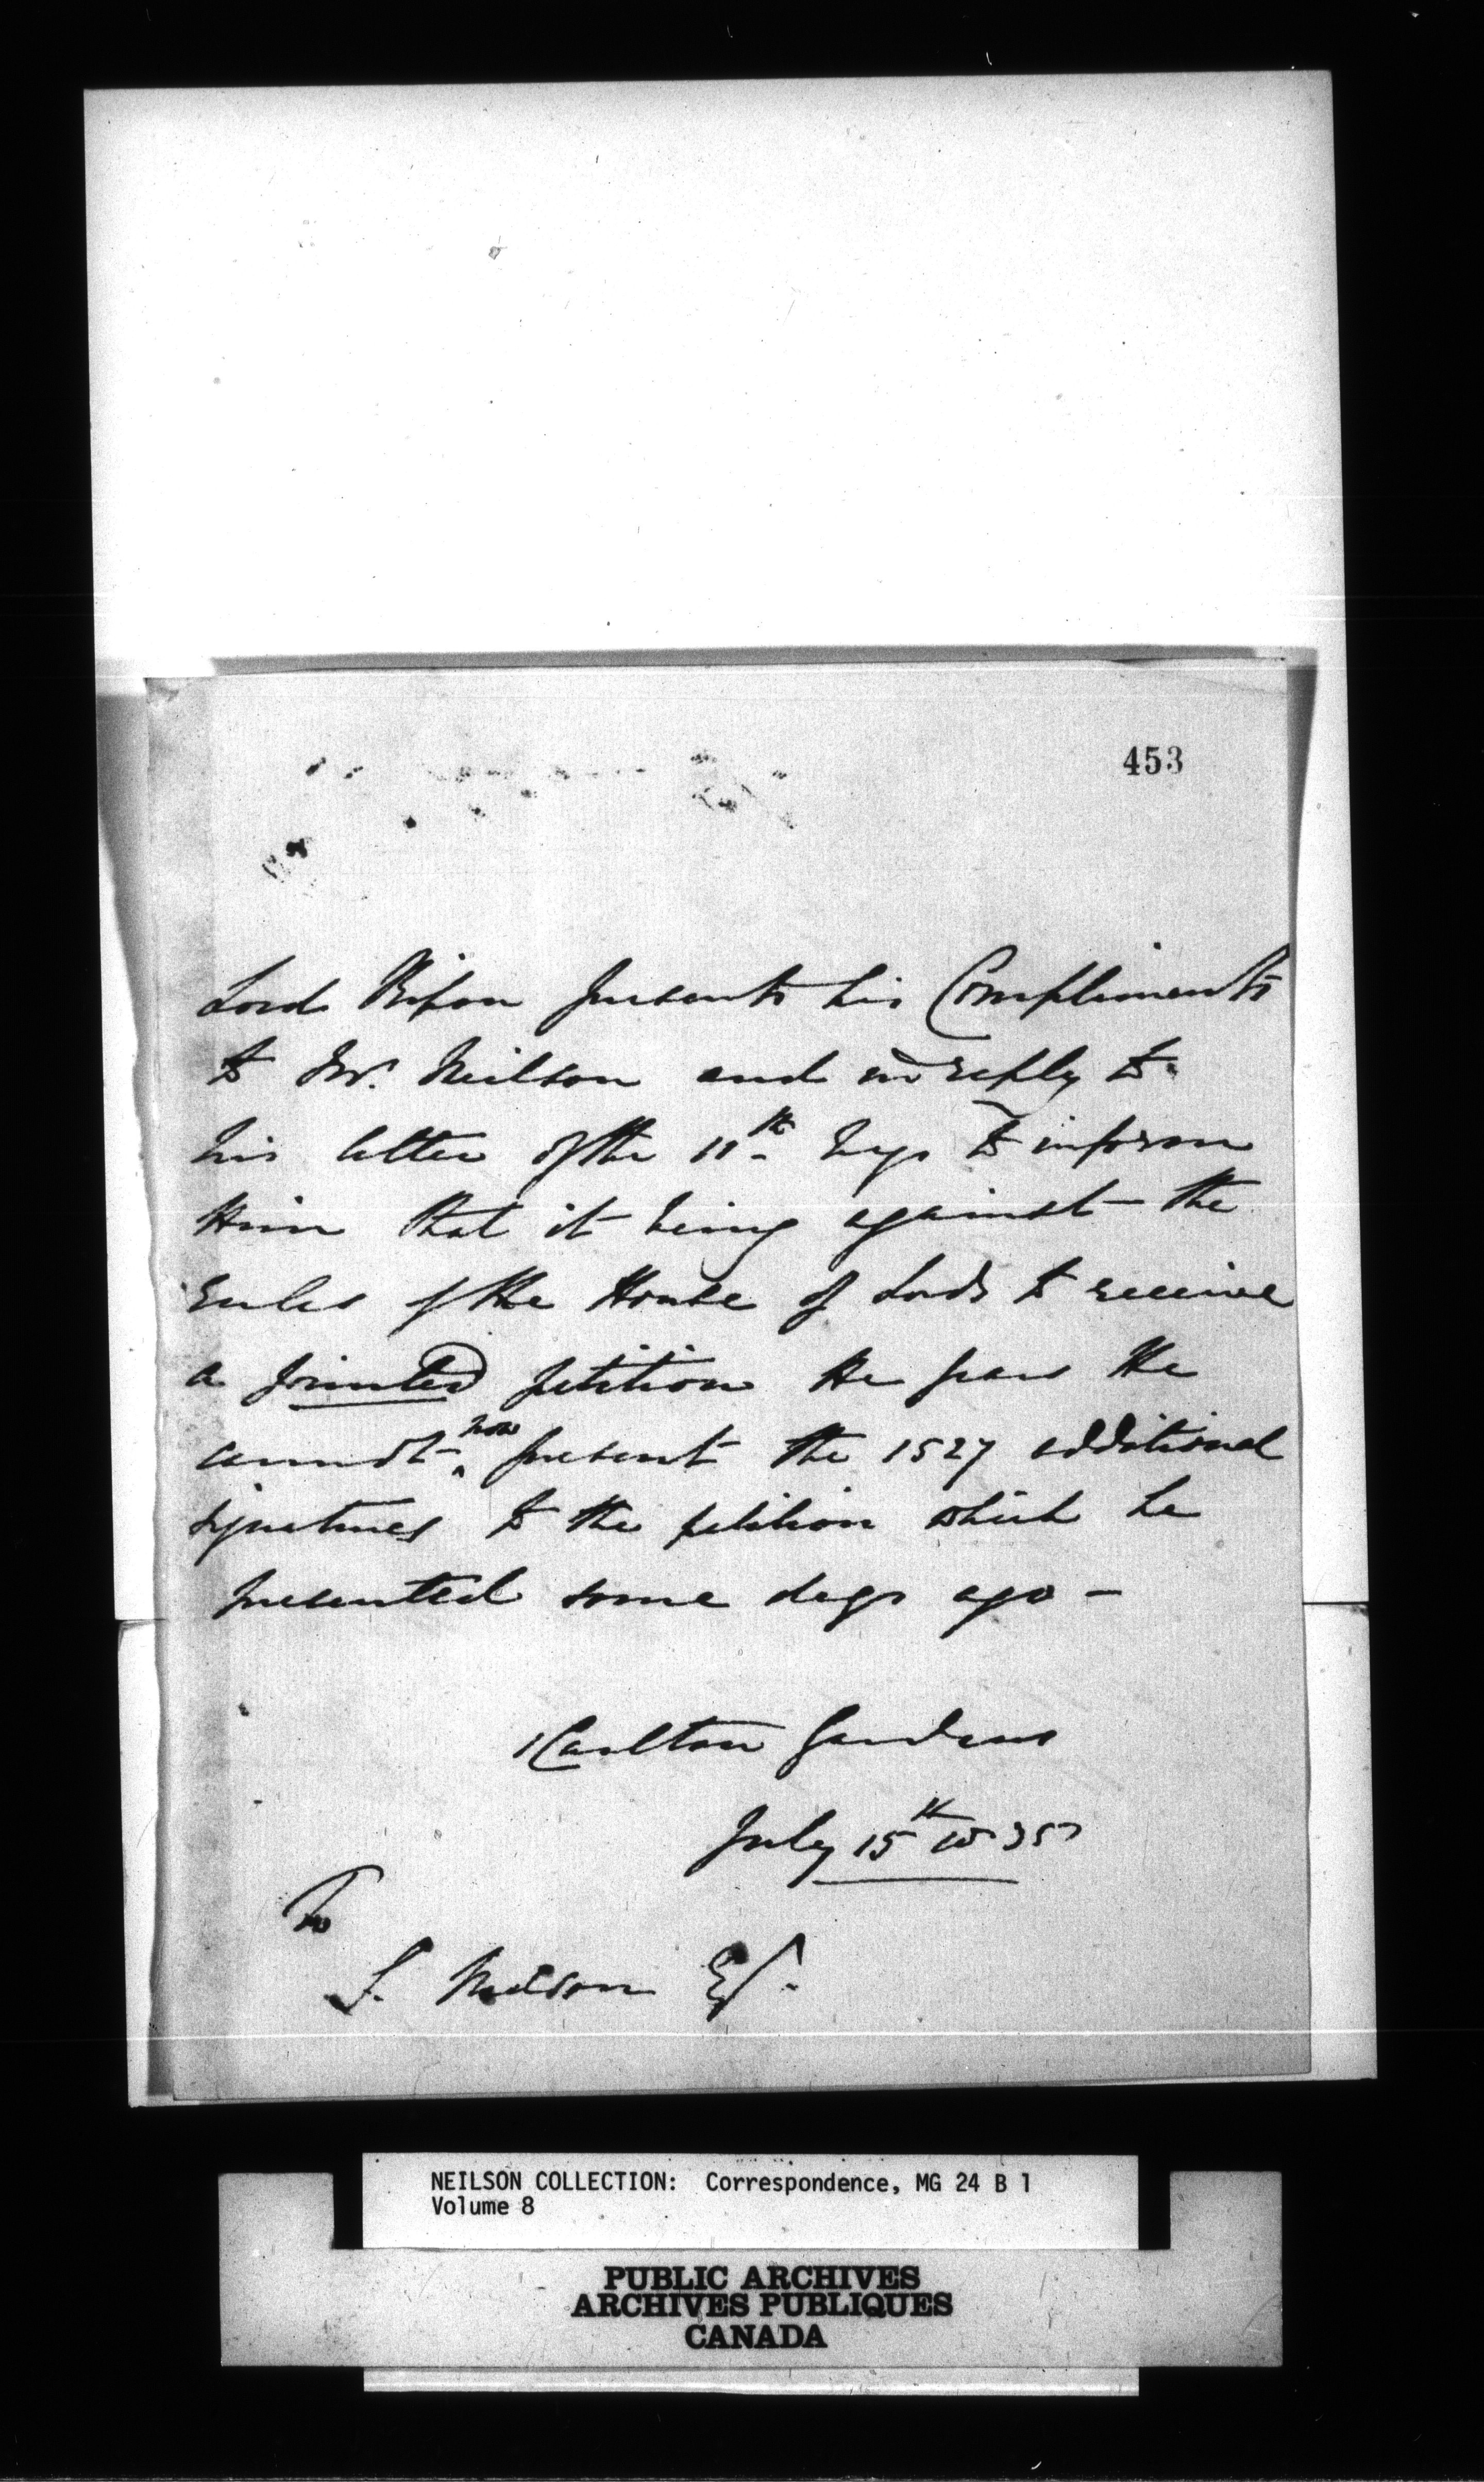 453
Lord Ripon presents his Compliments
to Mr. Neilson and in reply to
his letter of the 11th begs to inform
Him that it being against the
rules of the House of Lords to receive
a printed petition He fears He
cannot now present the 1527 additional
signatures to the petition which he
presented some days ago -
1 Carlton Gardens
July 15th 1835
To
J. Neilson Esq.
NEILSON COLLECTION: Correspondence, MG 24 B 1
Volume 8
PUBLIC ARCHIVES
ARCHIVES PUBLIQUES
CANADA